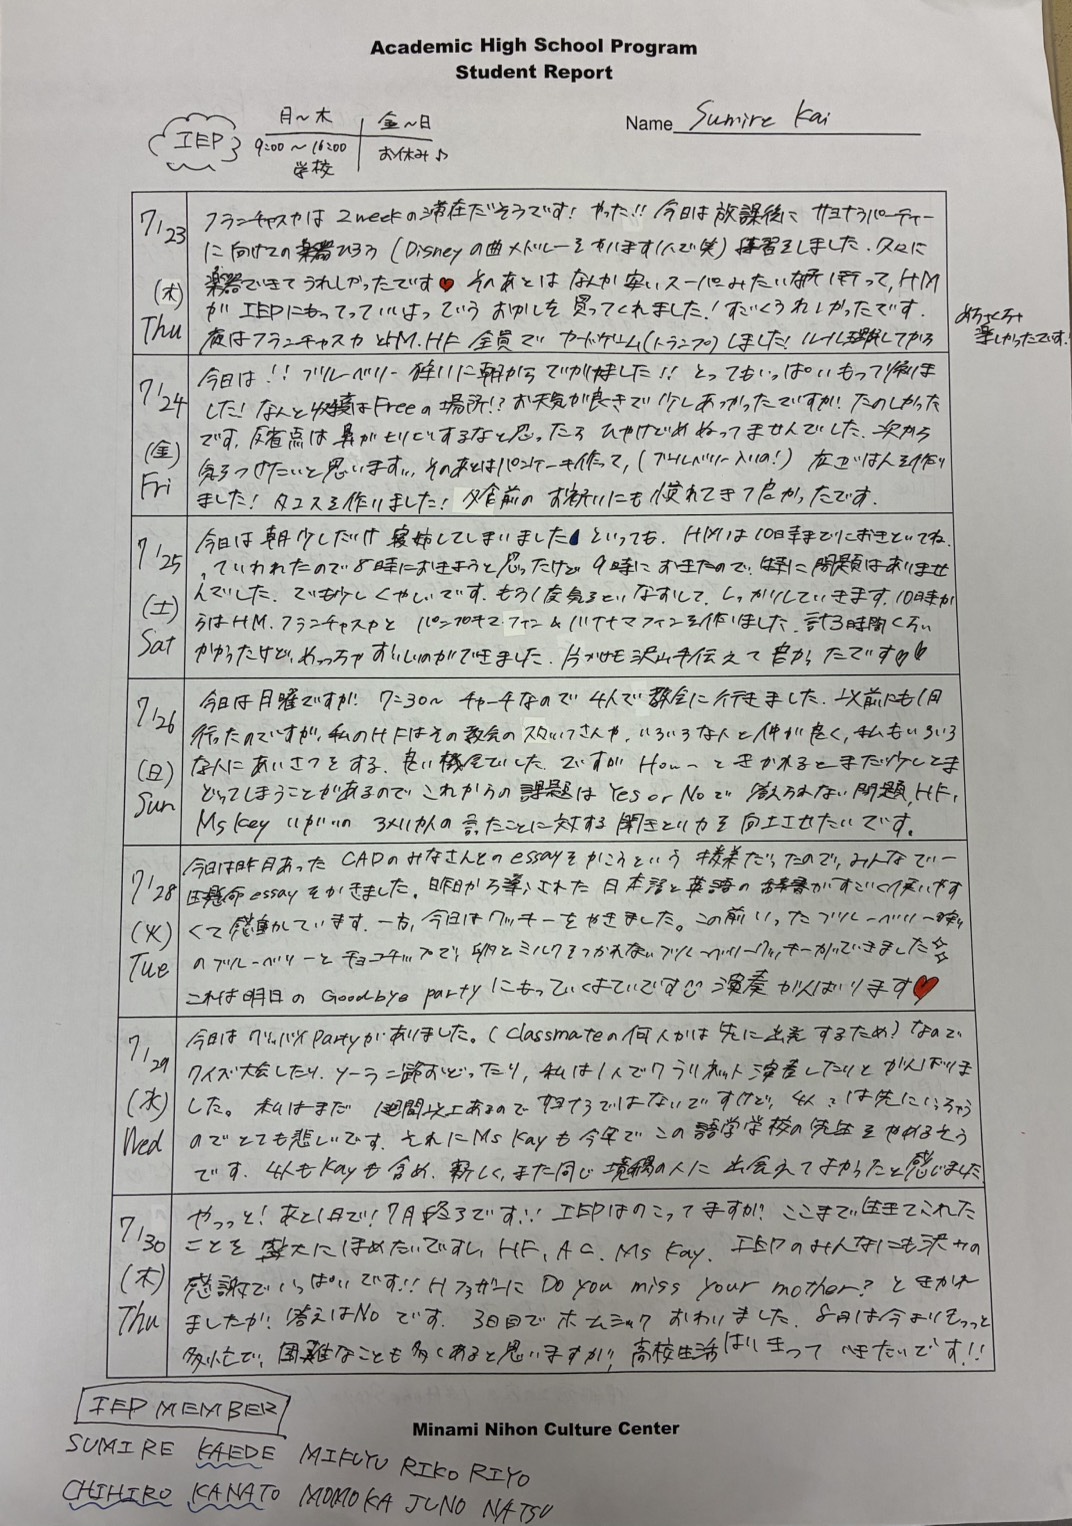 Academic High School Program
Student Report
IEP
月〜木
9:00〜16:00
学校
金〜日
お休み♪
Name Sumire Kai
7/23
(木)
Thu
フランチャスカは 2weekの滞在だそうです! やった!! 今日は 放課後に サヨナラパーティー
に向けての楽器ひろう (Disneyの曲メドレーをかいます1人で笑) 練習をしました. 久々に
楽器できて うれしかったです♥ そのあとは なんか 安いスーパみたいな所行って, HM
が IEPにもってっていいよっていう おかしを 買ってくれました! すごくうれしかったです.
夜はフランチャスカとHM.HF 全員で カードゲーム(トランプ)しました! ルール理解してから
めちゃくちゃ
楽しかったです!
7/24
(金)
Fri
今日は!! ブルーベリー狩りに朝から でかけました!! とってもいっぱい もって帰りま
した! なんと収穫はFreeの場所!? お天気が良すぎて少しあつかったですが! たのしかった
です. 反省点は 鼻がヒリヒリするなと思ったら ひやけどめぬってませんでした. 次から
気をつけたいと思います!, そのあとはパンケーキ作って, (ブルーベリー入りの!) 夜ごはんを作り
ました! タコスを作りました! 夕食前の お手伝いにも 慣れてきて良かったです.
7/25
(土)
Sat
今日は朝少しだけ 寝坊してしまいました といっても. HMには10時までにおきといてね.
っていわれたので 8時におきようと思ったけど 9時に おきたので, 特に 問題はありませ
んでした. でも少しくやしいです. もう1度気をとりなおして. しっかりしていきます. 10時半か
らはHM.フランチャスカと パンプキンマフィン&バナナマフィンを作りました. 計3時間くらい
かかったけど, めっちゃおいしいのができました. 片づけも沢山手伝えて 良かったです♡♡
7/26
(日)
Sun
今日は日曜ですが! 7:30〜 チャーチなので 4人で教会に行きました. 以前にも1回
行ったのですが, 私のHFはその教会のスタッフさんや, いろいろな人と仲が良く, 私もいろいろ
な人にあいさつをする. 良い機会でした. ですが How〜ときかれるとまだ少しとま
どってしまうことがあるので これからの 課題は Yes or Noで 答えられない問題, HF,
Ms Key いがいの アメリカ人の 言ったことに対する 聞きとり力を向上させたいです.
7/28
(火)
Tue
今日は昨日あった CADのみなさんとの essayをかこうという 授業だったので, みんなで一
生懸命essayをかきました. 昨日から導入された 日本語と英語の 辞書がすごく使いやす
くて 感動しています. 一方, 今日はクッキーをやきました。この前いったブルーベリー狩り
のブルーベリーと チョコチップで, 卵とミルクをつかわないブルーベリークッキーができました☆
これは明日の Goodbye partyにもっていくよていです☺ 演奏がんばります♥
7/29
(水)
Wed
今日はグッバイpartyがありました. (Classmateの何人かは先に出発するため) なので
クイズ大会したり, ソーラン節おどったり, 私は1人でクラリネット演奏したりと がんばりま
した。 私はまだ 1週間以上あるので お別れではないですけど, 4人は先にいっちゃう
のでとても悲しいです. それにMs Kayも今年で この語学学校の先生をやめるそう
です. 4人もKayも含め. 新しく, また同じ境遇の人に 出会えてよかったと感じました
7/30
(木)
Thu
やっっと! あと1日で! 7月終了です!! IEPはのこってますが! ここまで生きてこれた
ことを 盛大にほめたいですし, HF, AC, Ms Kay. IEPのみんなにも沢山の
感謝でいっぱいです!! Hファザーに Do you miss your mother? ときかれ
ましたが! 答えはNoです. 3日目でホームシック おわりました. 8月は今よりもっっと
多忙で, 困難なことも多くあると思いますが!, 高校生活はいきって いきたいです!!
IEP MEMBER
Minami Nihon Culture Center
SUMIRE KAEDE MIFUYU RIKO RIYO
CHIHIRO KANATO MOMOKA JUNO NATSU